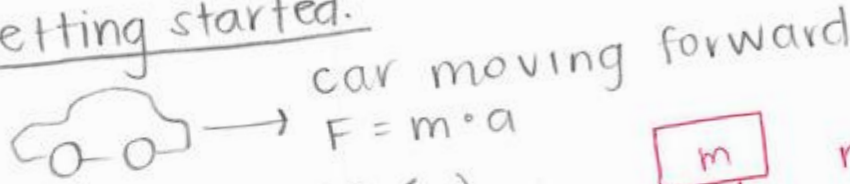 etting started.
car moving forward
F = m · a
m